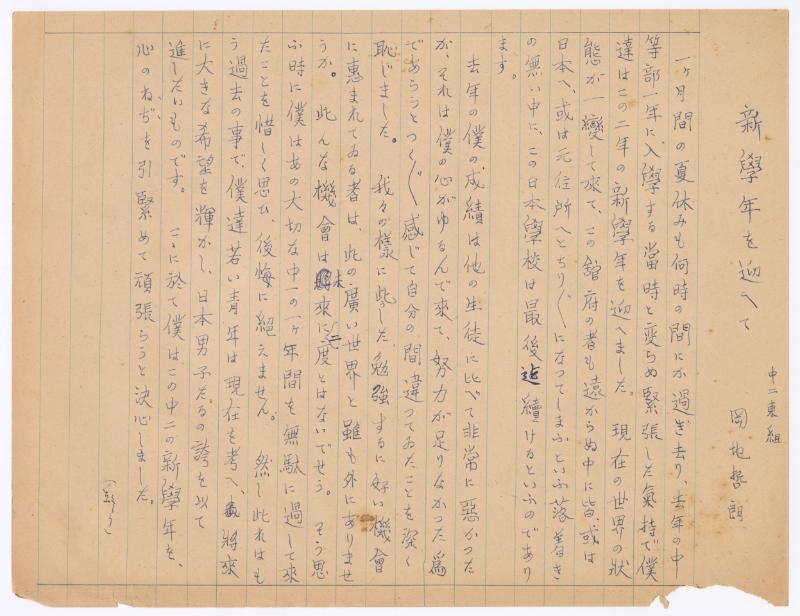 新學年を迎へて
中二東組
岡地哲朗
一ヶ月間の夏休みも何時の間にか過ぎ去り、去年の中
等部一年に入學する當時と変らぬ緊張した氣持で僕
達はこの二年の新學年を迎へました。 現在の世界の狀
態が一變して來て、この舘府の者も遠からぬ中に皆、或は
日本へ、或は元住所へとちり〴〵になつてしまふといふ落着き
の無い中に、この日本學校は最後迄續けるといふのであり
ます。
去年の僕の成績は他の生徒に比べて非常に惡かつた
が、それは僕の心がゆるんで來て、努力が足りなかつた爲
であらうとつく〴〵感じて自分の間違つてゐたことを深く
恥じました。 我々の樣に此うした勉強するに好い機會
に惠まれてゐる者は、此の廣い世界と雖も外にありませ
うか。 此んな機會は未來に二度とはないでせう。 そう思
ふ時に僕はあの大切な中一の一ヶ年間を無駄に過して來
たことを惜しく思ひ、後悔に絕えません。 然し此れはも
う過去の事で、僕達若い青年は現在を考へ、將來
に大きな希望を輝かし、日本男子たるの誇を以て
進したいものです。 こゝに於て僕はこの中二の新學年を、
心のねぢを引緊めて頑張らうと決心しました。
(終り)